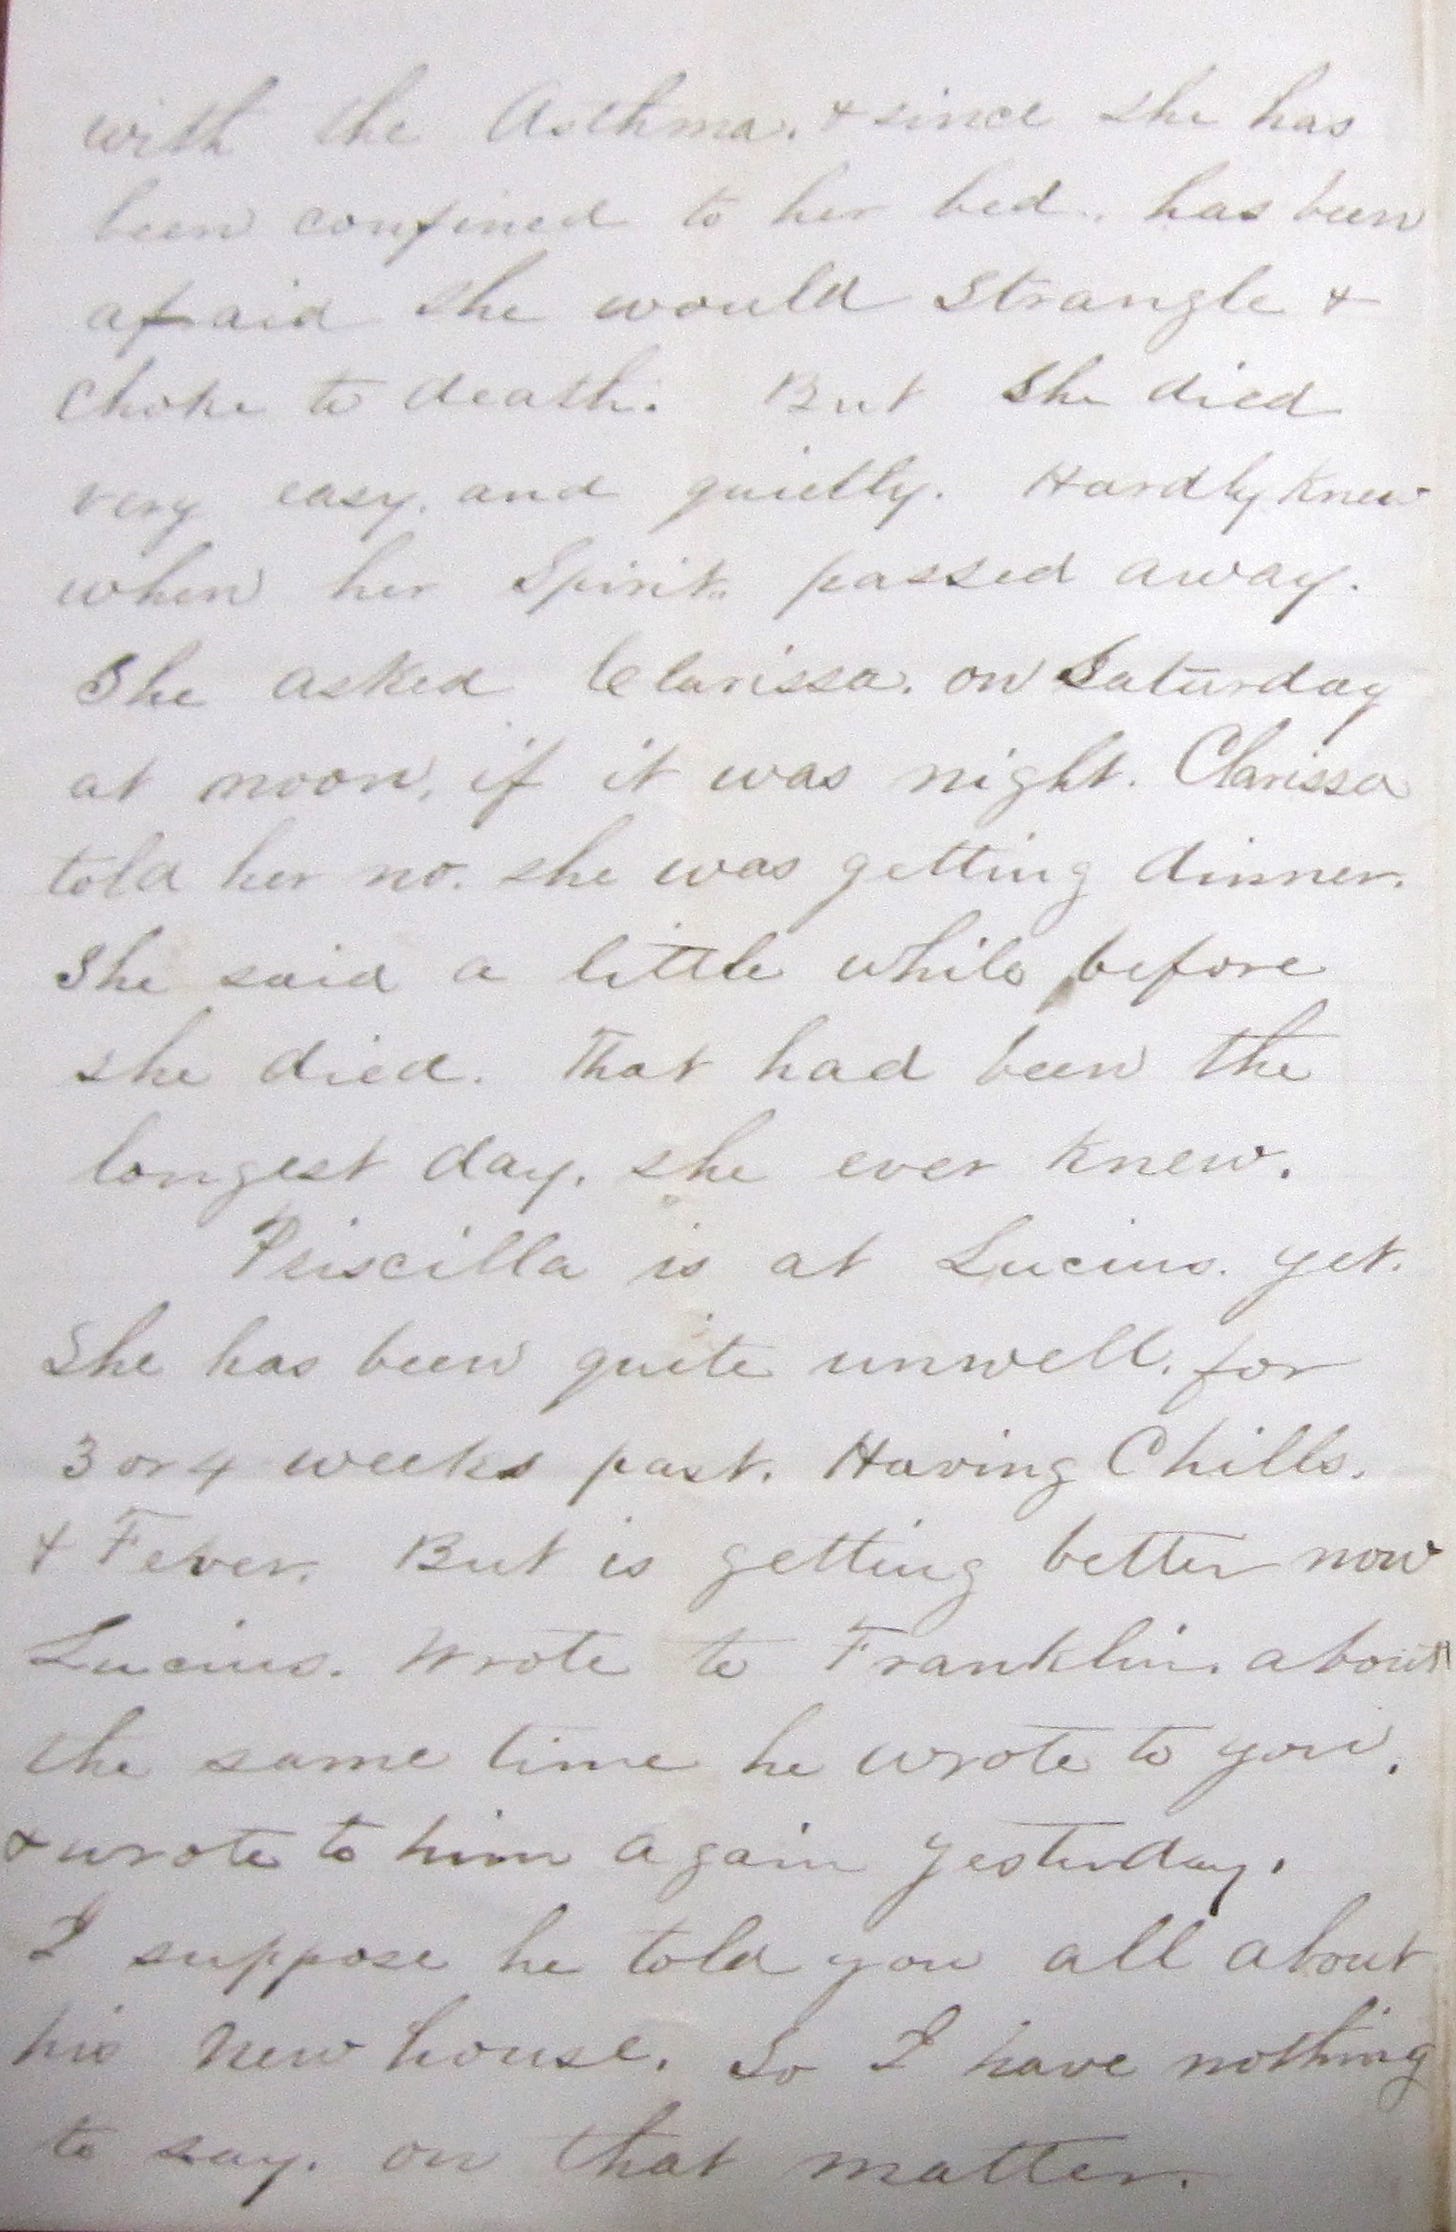 with the Asthma. & since she has
been confined to her bed. has been
afraid she would strangle &
choke to death. But she died
very easy. and quietly. Hardly knew
when her Spirit passed away.
She asked Clarissa. on Saturday
at noon, if it was night. Clarissa
told her no. she was getting dinner.
She said a little while before
she died. That had been the
longest day. she ever knew.
Priscilla is at Lucius. yet.
She has been quite unwell. for
3 or 4 weeks past. Having Chills.
& Fever. But is getting better now
Lucius. wrote to Franklin. about
the same time he wrote to you.
& wrote to him again yesterday.
I suppose he told you all about
his new house. So I have nothing
to say. on that matter.